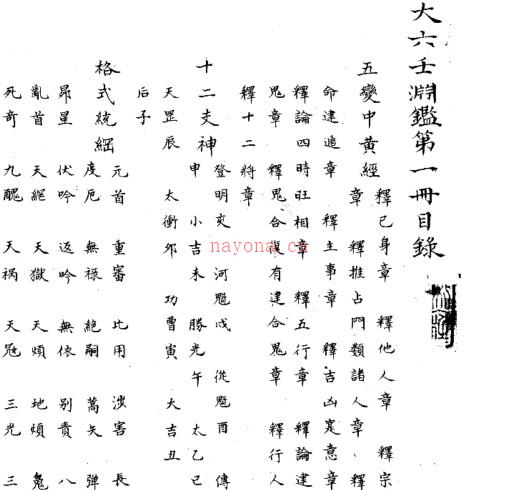 大六壬淵鑑第一冊目錄
五變中黃經
釋己身章 釋他人章 釋宗
章 釋推占門類諸人章、釋
命建遁章 釋主事章 釋吉凶定意章
釋論四時旺相章 釋五行章 釋論建
鬼章 釋鬼合復有建合鬼章 釋行人
釋十二將章
十二支神
登明亥 河魁戌 從魁酉 傳
申 小吉未 勝光午 太乙巳
天罡辰 太衝夘 功曹寅 大吉丑
后子
格式統綱
元首 重審 比用 涉害 長
度厄 無祿 絕嗣 蒿矢 彈
昴星 伏吟 返吟 無依 別責 八
亂首 天絕 天獄 天煩 地煩 鬼
死奇 九醜 天禍 天寇 三光 三
nayona.cn